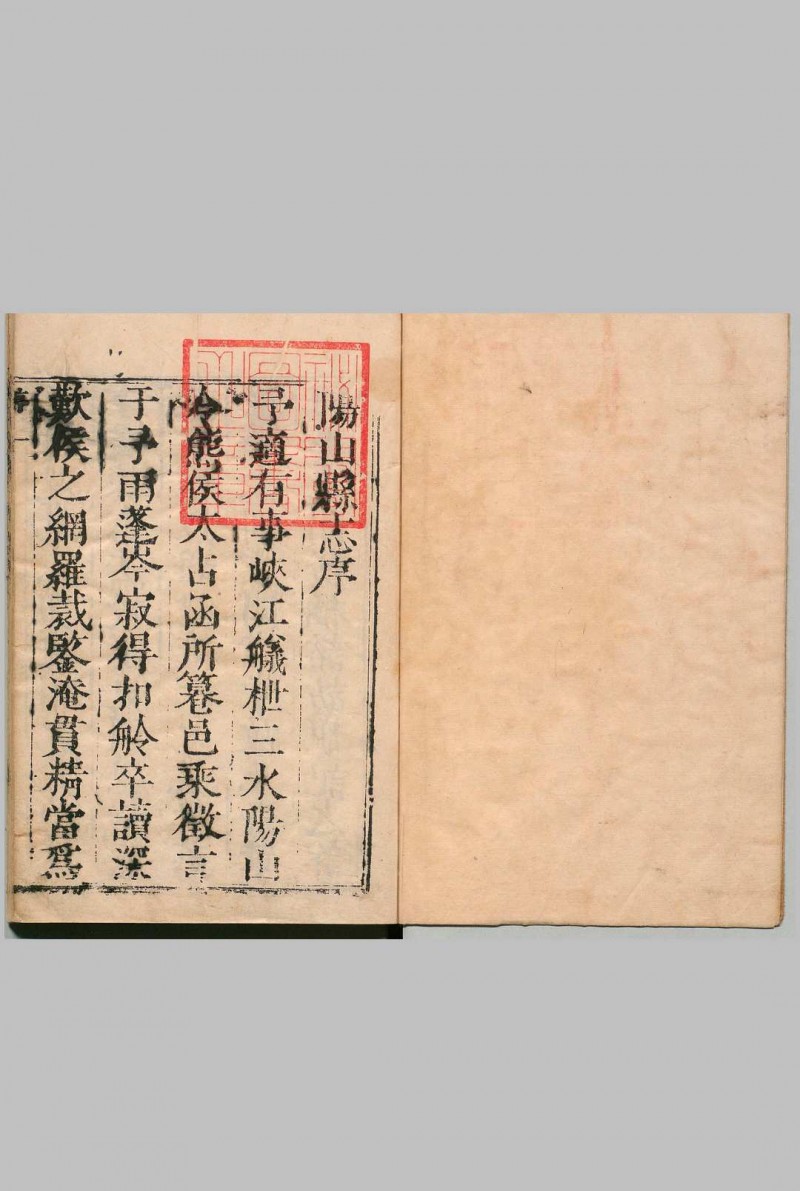 陽山縣志序
予適有事峽江艤枻三水陽山
令熊侯太占函所纂邑乘徵言
于予雨蓬岑寂得扣舲卒讀深
歎侯之網羅裁鑒淹貫精當爲